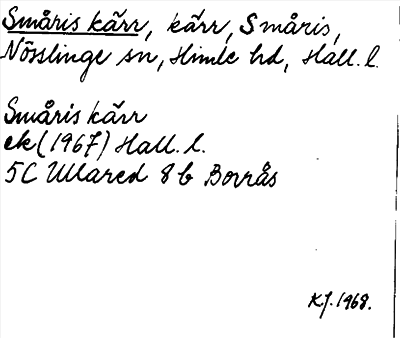 Småris kärr, kärr, Småris,
Nösslinge sn, Himle hd, Hall. l.
Småris kärr
ek (1967) Hall. l.
5C Ullared 8 b Borrås
K.J. 1968.